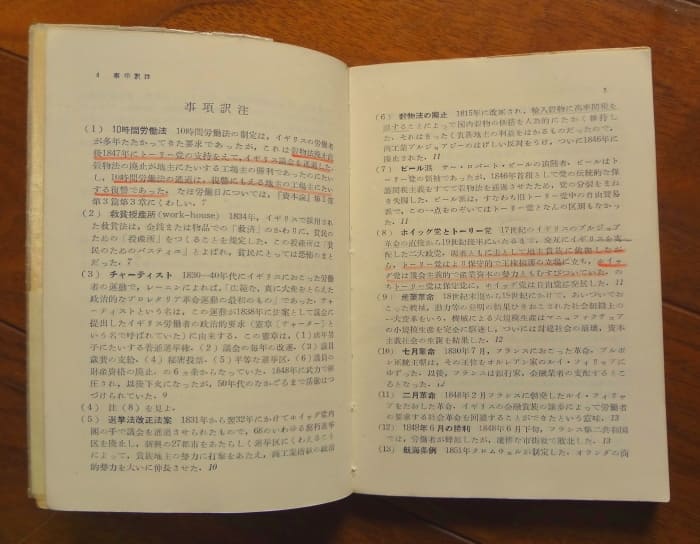 4 事項訳注
事項訳注
(1) 10時間労働法 10時間労働法の制定は,イギリスの労働者
が多年たたかってきた要求であったが,これは穀物法廃止直
後1847年にトーリー党の支持をえて,イギリス議会を通過した.
穀物法の廃止は地主にたいする工場主の勝利であったのにたい
し,10時間労働法の通過は,復讐にもえる地主の工場主にたい
する復讐であった.なお労働日については,『資本論』第1巻
第3篇第3章にくわしい. 7
(2) 救貧授産所(work-house) 1834年,イギリスで採用され
た救貧法は,金銭または物品での「救済」のかわりに,貧民の
ための「授産所」をつくることを指定した.この授産所は「貧
民のためのバスティユ」とよばれ,貧民にとっては恐怖のまと
だった. 7
(3) チャーティスト 1830―40年代にイギリスにおこった労働
者の運動で,レーニンによれば,「広範な,真に大衆をとらえた,
政治的なプロレタリア革命運動の最初のもの」であった.チャ
ーティストという名は,この運動が1838年に法案として議会に
提出したイギリス労働者の政治的要求(憲章〔チャーター〕と
いう名で呼ばれていた)に由来する.この憲章は,(1)成年男
子にたいする普通選挙権,(2)議会の毎年の改選,(3)議員
歳費の支給,(4)秘密投票,(5)平等な選挙区,(6)議員の
財産資格の廃止,の6ヵ条からなっていた.1848年に武力で弾
圧され,以後下火になったが,50年代のなかごろまで活動はつ
づけられていた. 9
(4) 注(8)を見よ.
(5) 選挙法改正法案 1831年から翌32年にかけてホイッグ党内
閣の手で議会を通過させられたもので,
区を廃止し,新興の27都市をあたらしく選挙区にくわえること
によって,貴族地主の勢力に打撃をあたえ,商工業階級の政治
的勢力を大いに伸長させた. 10
5
(6) 穀物法の廃止 1815年に改正され,輸入穀物に高率関税を
課することによって国内穀物の価格を人為的にたかく維持し,
それはもっぱら貴族地主の利益をはかるものだったので,
商工業ブルジョアジーのはげしい反対をうけ,ついに1846年に
廃止された. 11
(7) ピール派 サー・ロバート・ピールの追随者.ピールはト
ーリー党の領袖であったが,1846年首相として党の伝統的な保
護関税主義をすてて穀物法を通過させたため,党の分裂をまね
き失脚した.ピール派は,すなわち旧トーリー党中の自由貿易
派で,この一点をのぞいてはトーリー党となんの区別もなかっ
た. 11
(8) ホイッグ党とトーリー党 17世紀のイギリスのブルジョア
革命の直後から19世紀後半にいたるまで,交互にイギリスを支
配した二大政党.両者ともに主として地主貴族に依拠したが
が,トーリー党はより保守的で王権擁護の立場に立ち,ホイッ
グ党は議会主義的で産業資本の勢力ともむすびついていた.の
ちトーリー党は保守党に,ホイッグ党は自由党に発展した. 11
(9) 産業革命 18世紀末頃から19世紀にかけて,あいついでお
こった機械,動力等の発明の結果ひきおこされた社会制度上の
一大変革をいう.機械による大規模生産はマニュファクチュア
の小規模生産を完全に駆逐し,ついには封建社会の崩壊,資本
主義社会の生誕を結果した. 12
(10) 七月革命 1830年7月,フランスにおこった革命.ブルボ
ン正統王朝は,その王位をオルレアン家のルイ・フィリップに
ゆずった.以後,フランスは銀行家,金融業者の支配するとこ
ろとなった. 12
(11) 二月革命 1848年2月フランスに勃発したルイ・フィリッ
プをたおした革命.イギリスの金融貴族の譲歩によって労働者
の要求する社会革命を回避することができたという意味. 13
(12) 1848年6月の勝利 1848年6月下旬,フランス第二共和国
では,労働者が蜂起したが,凄惨な市街戦で敗北した. 13
(13) 航海条例 1851年クロムウェルが制定した.オランダの商